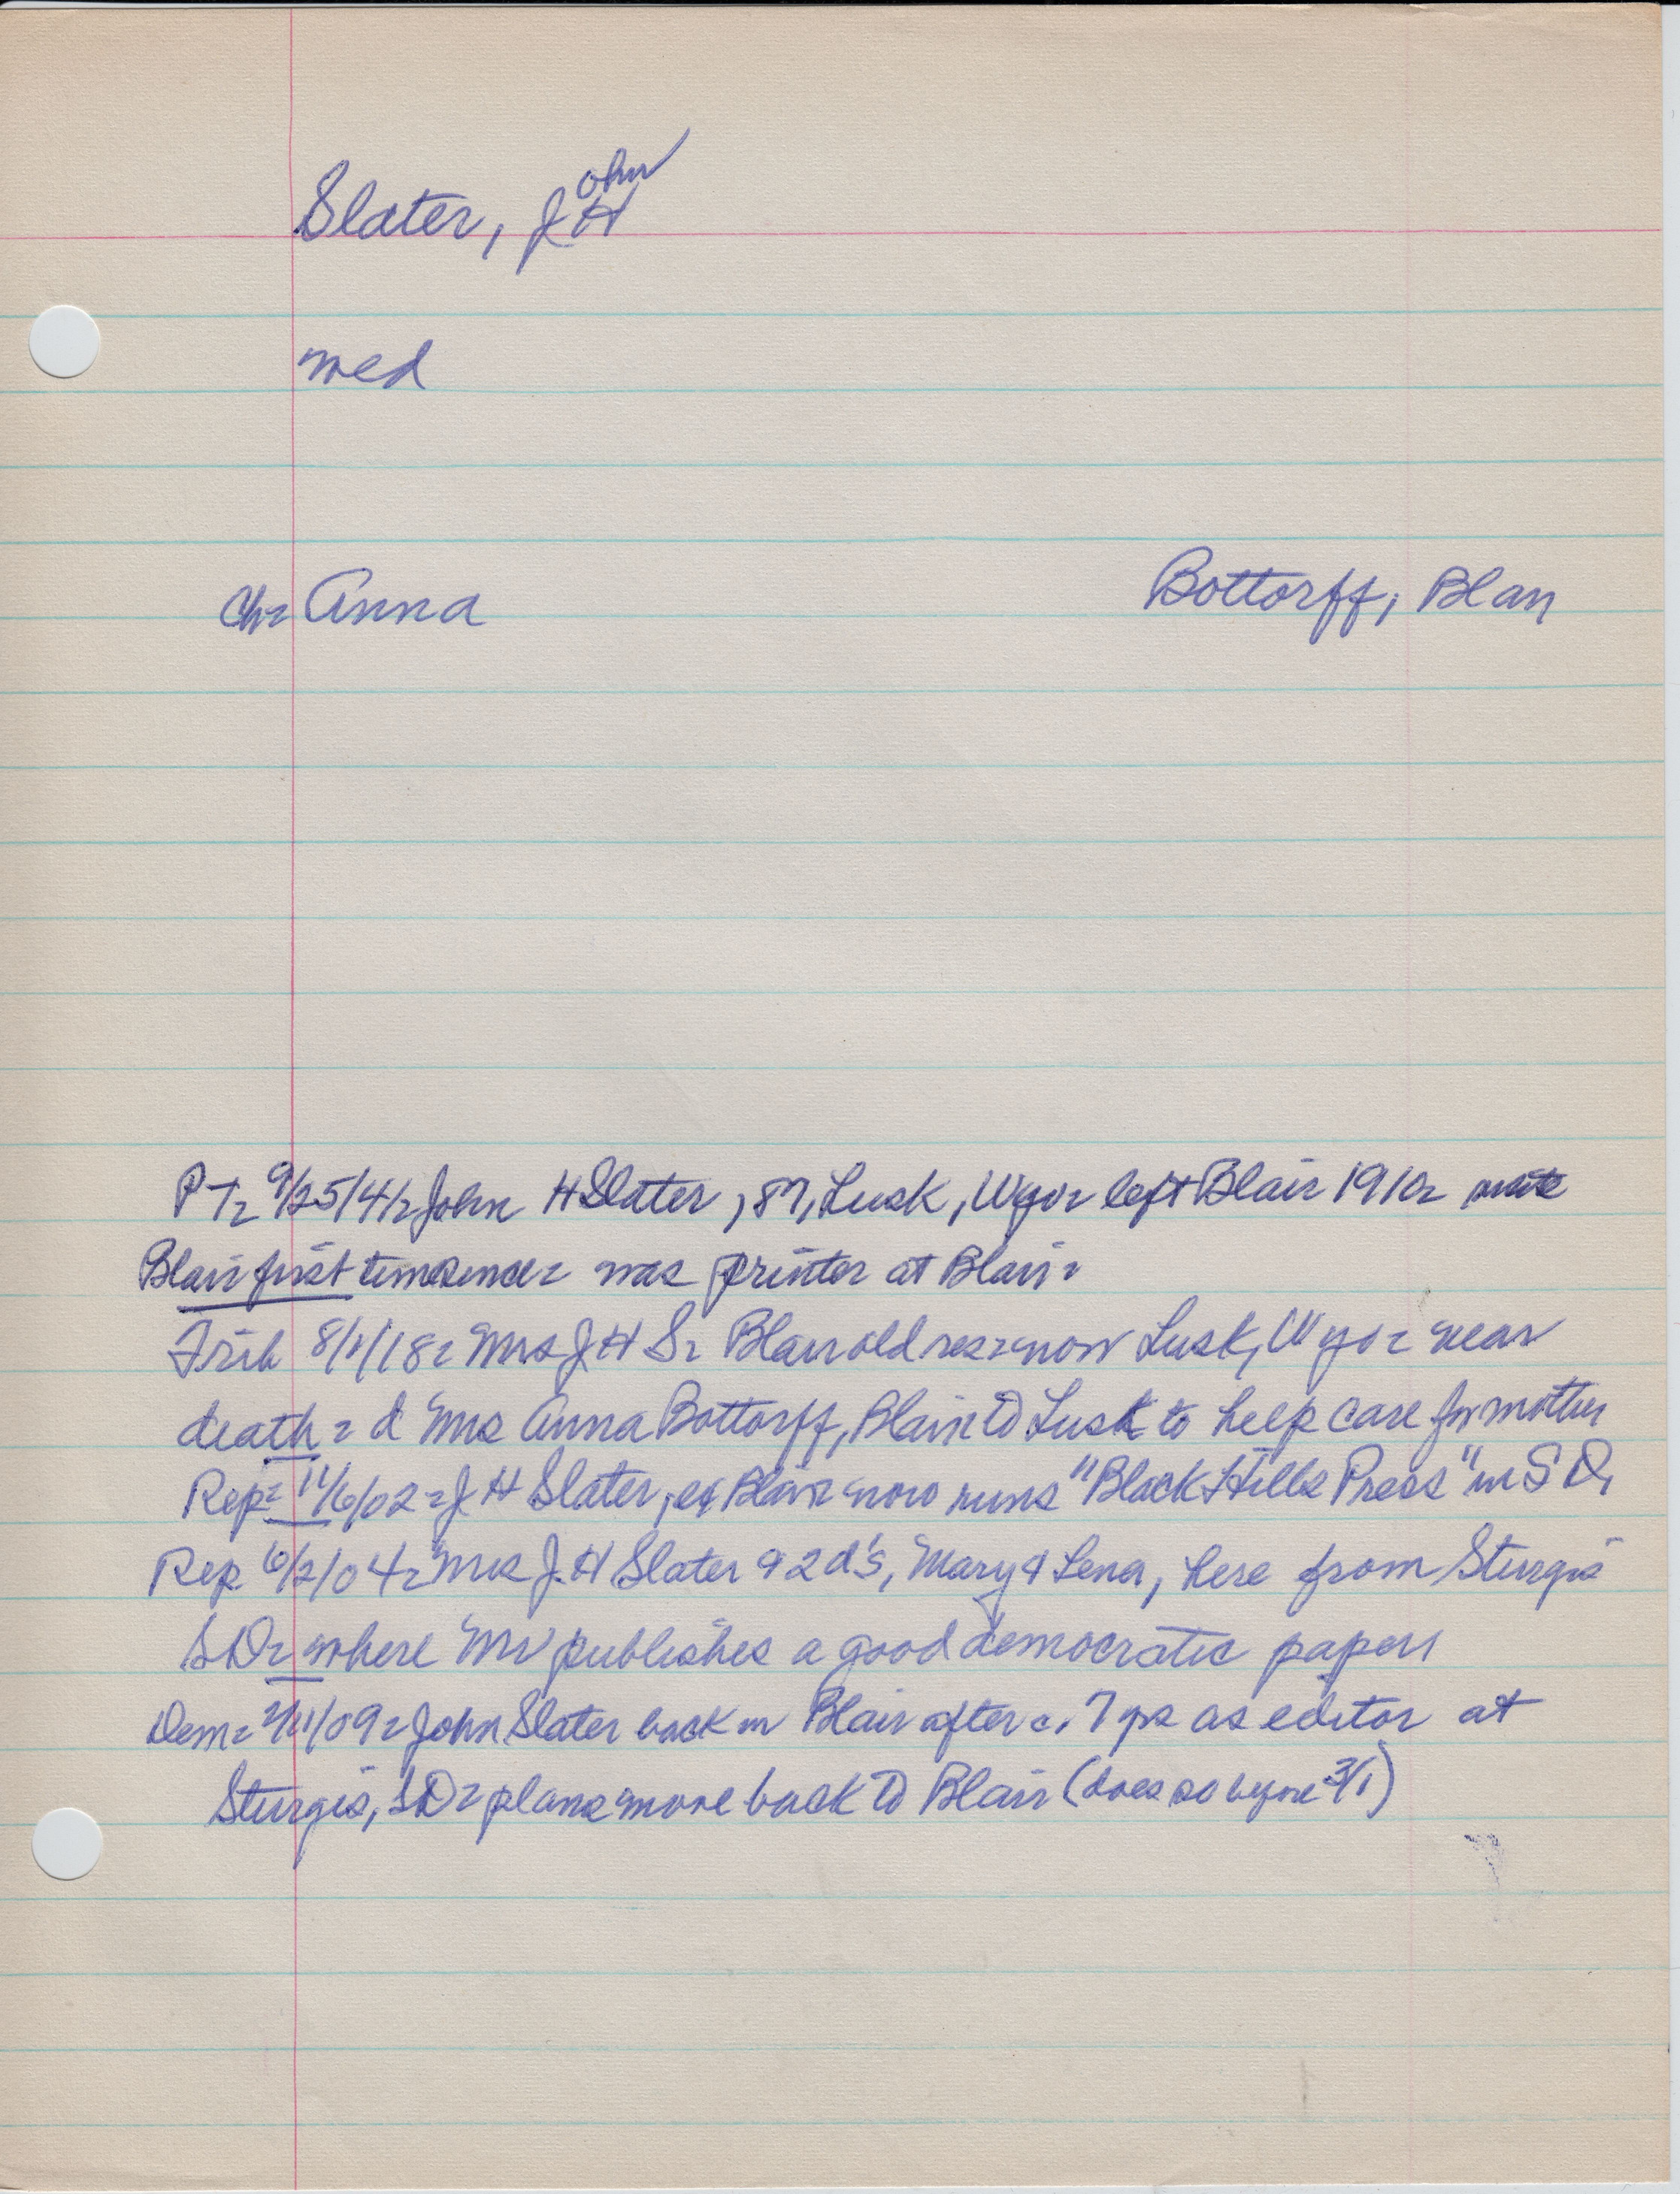 Slater, John H
med
Ch= Anna Bottorff, Blan
PT= 9/25/41= John H Slater, 87, Lusk, Wyo= left Blair 1910=
Blair first time since= was printer at Blair=
Trib 8/1/18= Mrs J H S= Blair old res= now Lusk, Wyo= near
death= d Mrs Anna Bottorff, Blair to Lusk to help care for mother
Rep= 11/6/02= J H Slater, ex Blair= now runs "Black Hills Press" in S D,
Rep 6/2/04= Mrs J.H Slater & 2 d's, Mary & Lena, here from Sturgis
SD= where Mr publishes a good democratic paper
Dem= /09= John Slater back in Blair after c. 7 yrs as editor at
Sturgis, SD= plans move back to Blair (does so by 3/1)